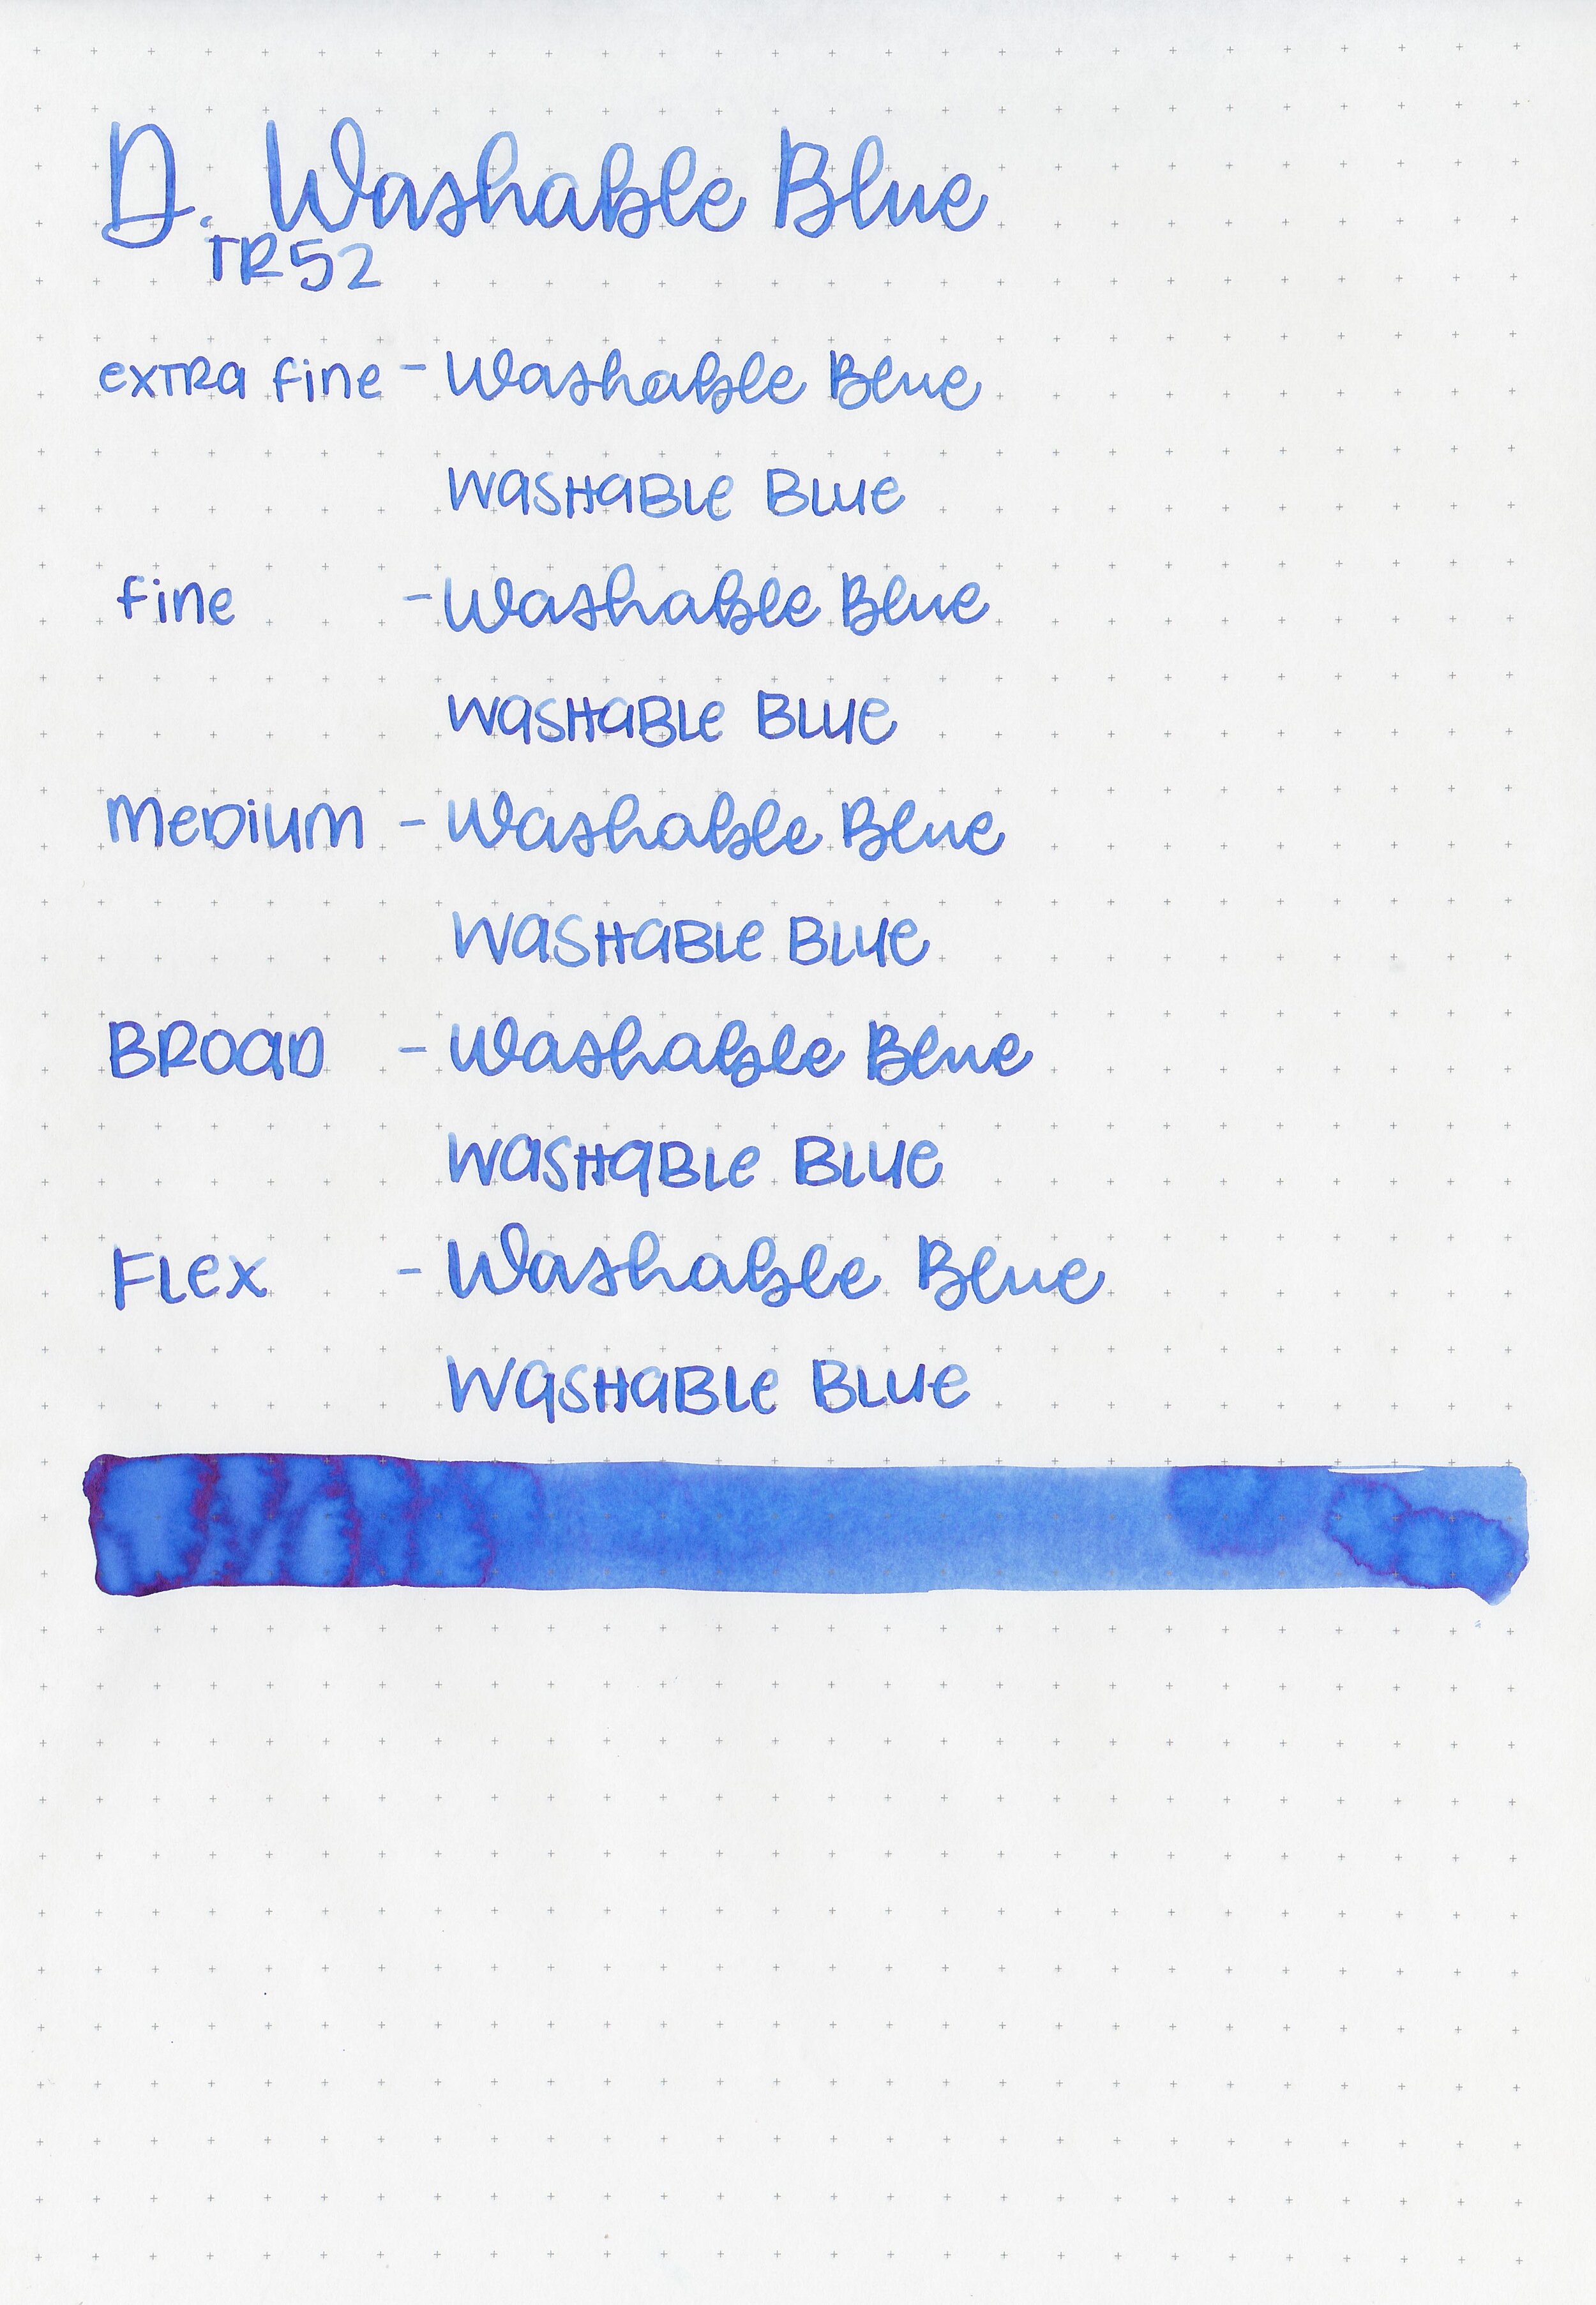 D. Washable Blue
TR52
extra fine - Washable Blue
WASHABLE BLUE
fine - Washable Blue
WASHABLE BLUE
Medium - Washable Blue
WASHABLE BLUE
BROAD - Washable Blue
WASHABLE BLUE
Flex - Washable Blue
WASHABLE BLUE